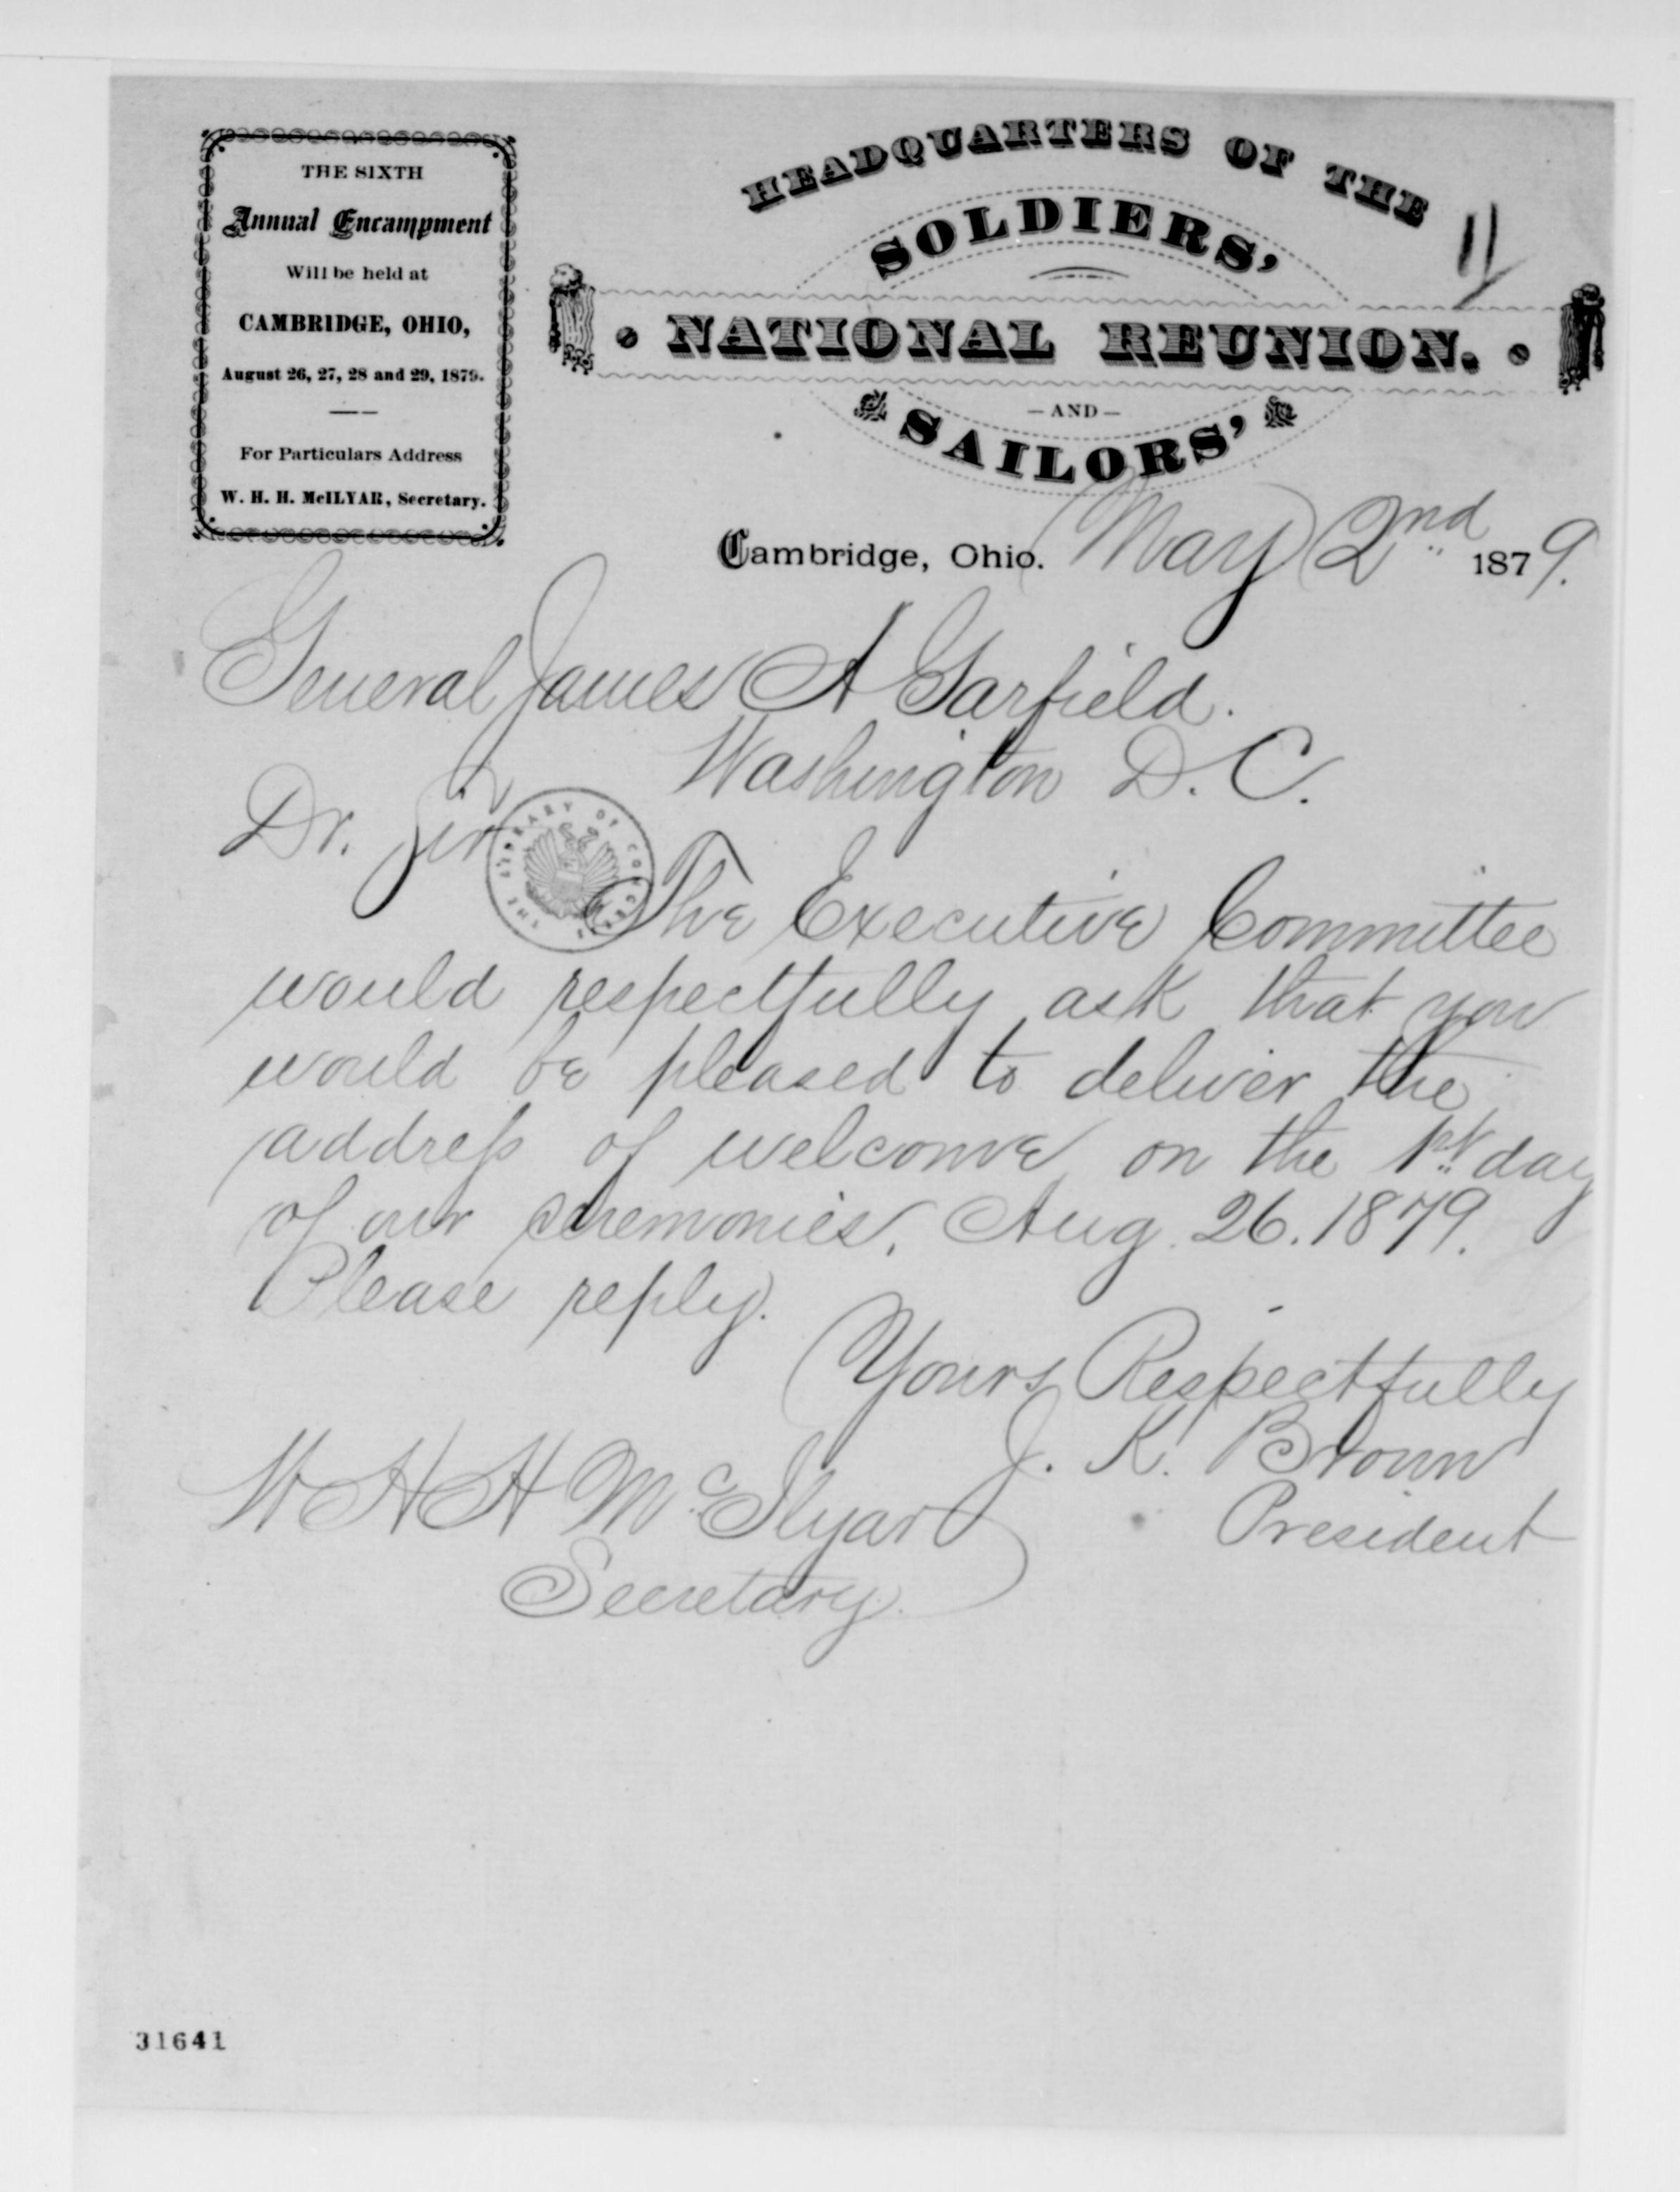 THE SIXTH
Annual Encampment
Will be held at
CAMBRIDGE, OHIO,
August 26, 27, 28 and 29, 1879.
For Particulars Address
W. H. H. McILYAR, Secretary.
HEADQUARTERS OF THE
SOLDIERS'
NATIONAL REUNION.
— AND —
SAILORS'
11
Cambridge, Ohio. May 2nd 1879.
General James A Garfield.
Washington D. C.
Dr. Sir
THE LIBRARY OF CONGRESS
The Executive Committee
would respectfully ask that you
would be pleased to deliver the
address of welcome on the 1st day
of our ceremonies. Aug. 26. 1879.
Please reply.
Yours Respectfully
J. K. Brown
President
W H H McIlyar
Secretary.
31641